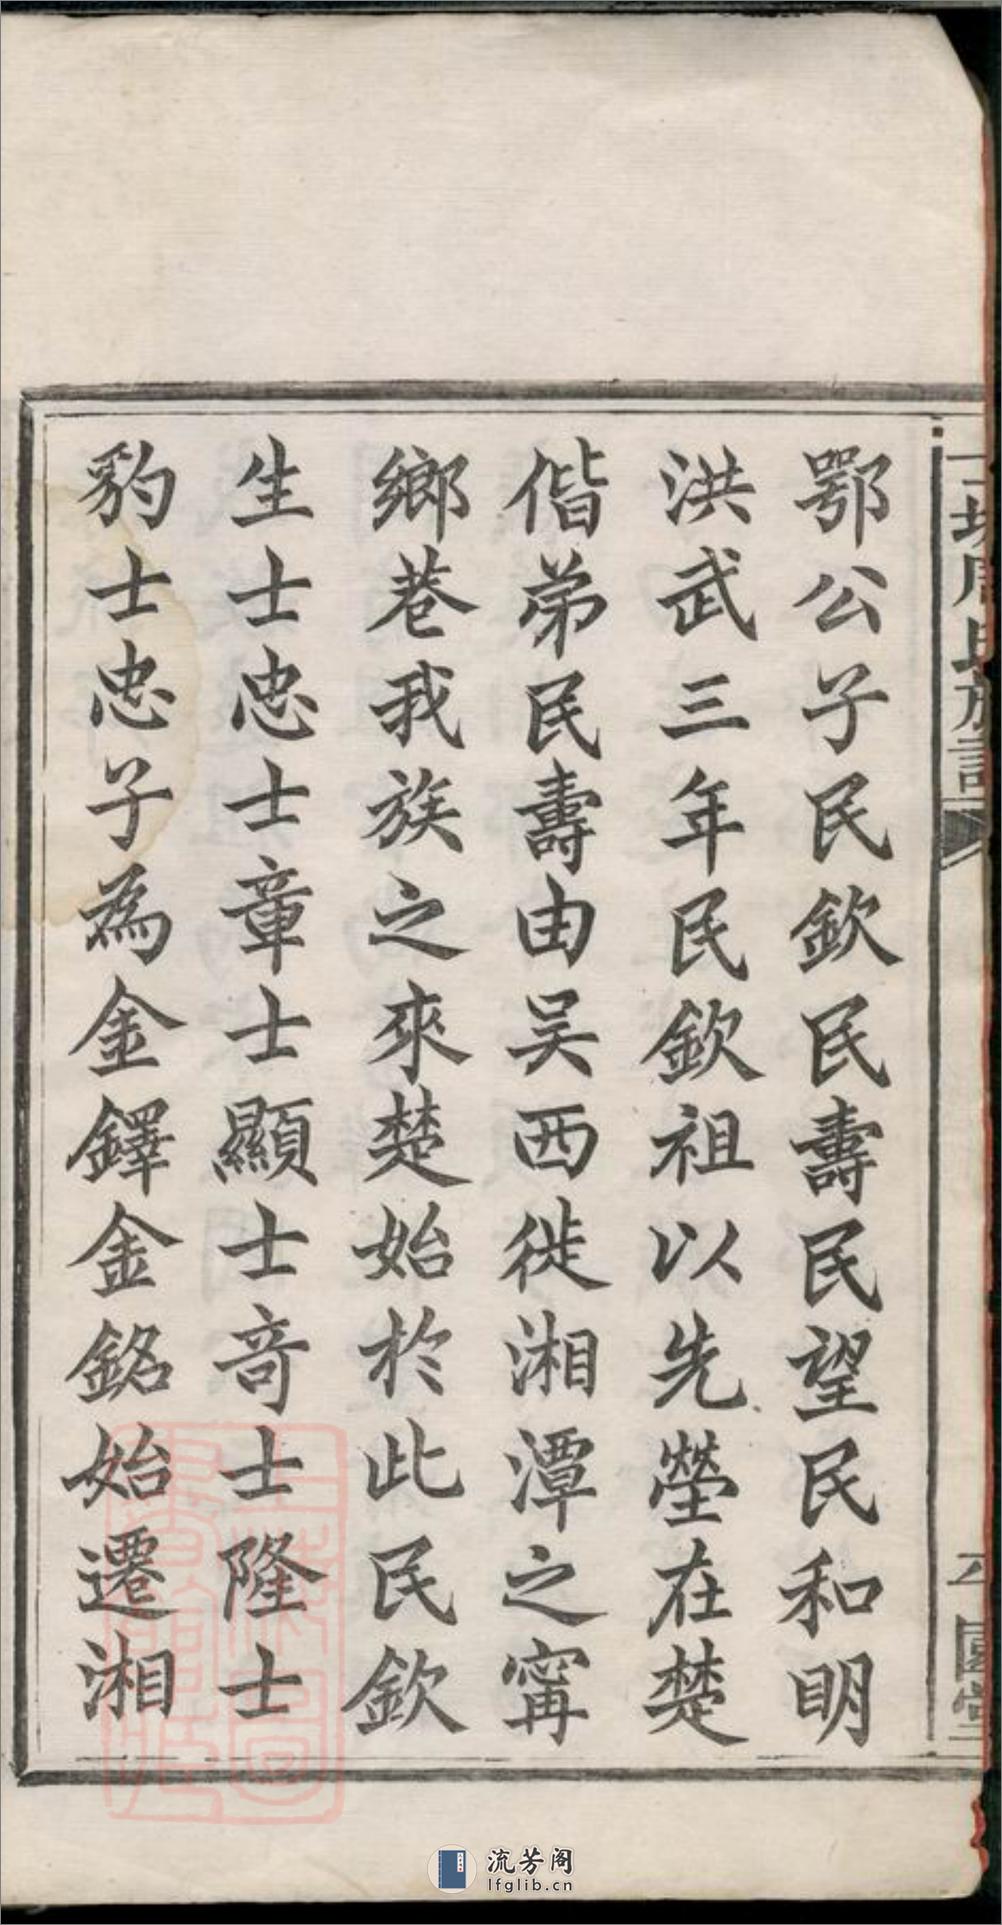 鄂公子民欽民壽民望民和明
洪武三年民欽祖以先塋在楚
偕弟民壽由吴西徙湘潭之寗
鄉巷我族之來楚始於此民欽
生士忠士章士顯士竒士隆士
豹士忠子為金鐸金銘始遷湘
周氏族譜
流芳阁
lfglib.cn